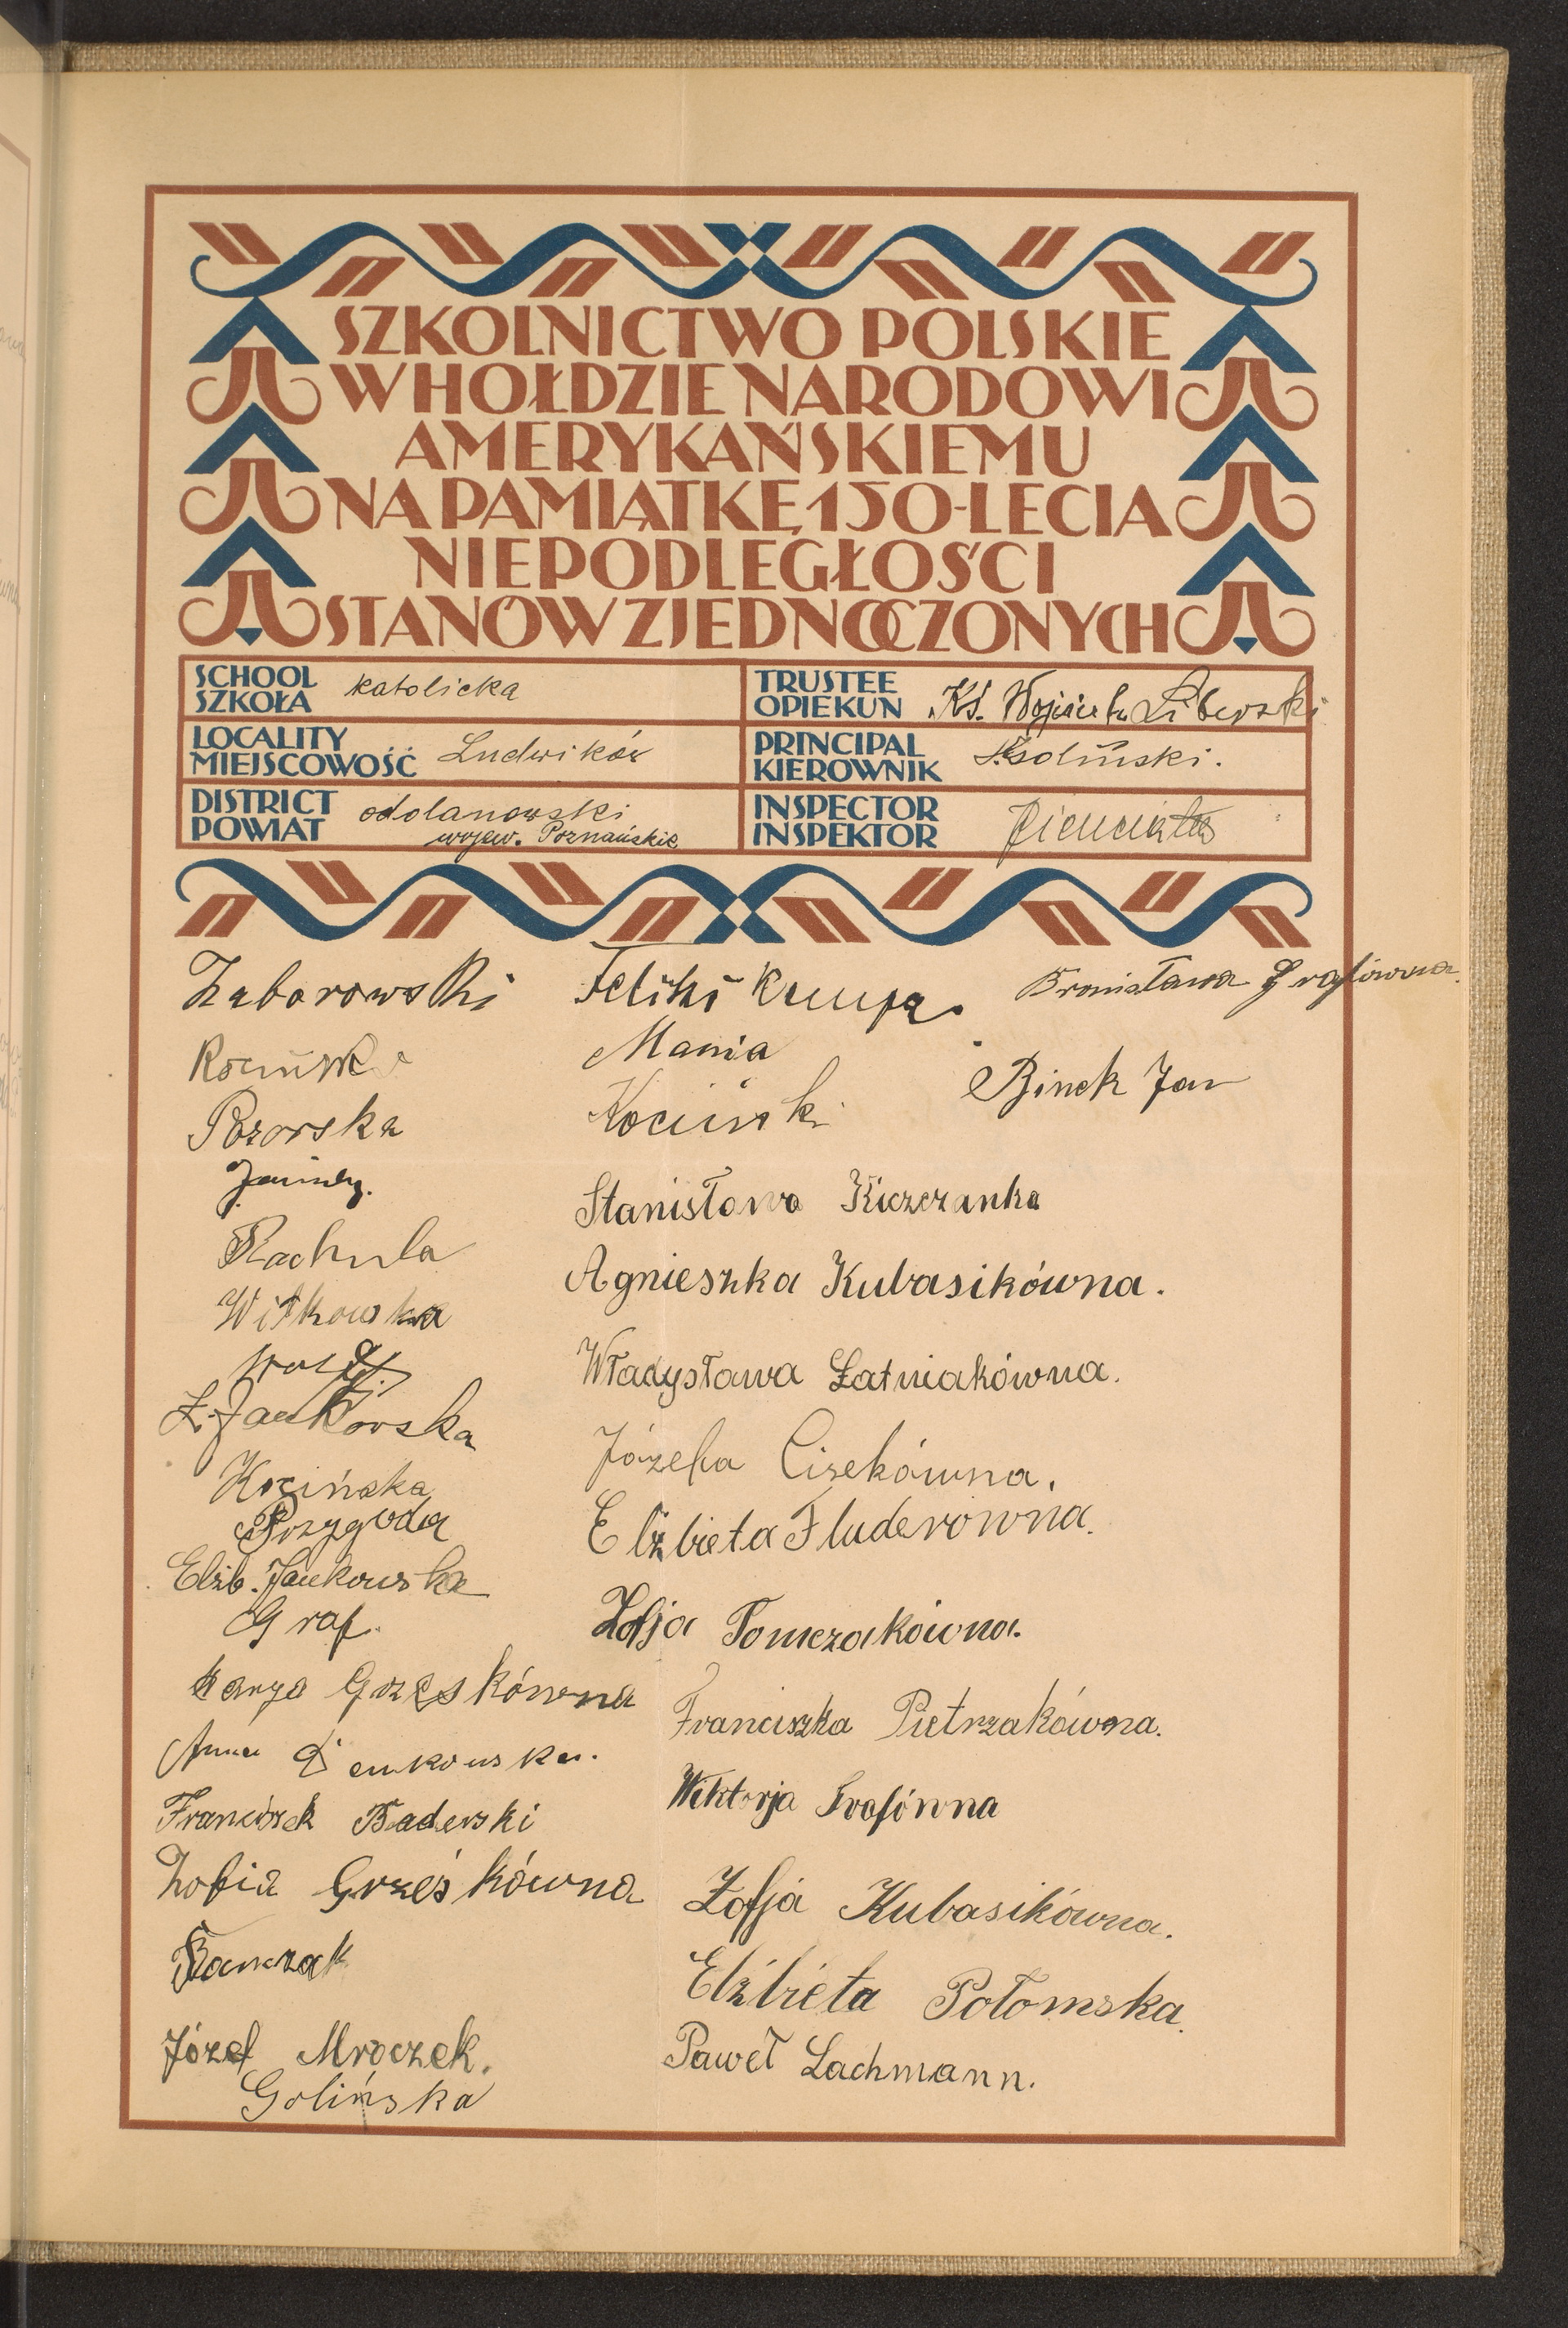 SZKOLNICTWO POLSKIE
W HOŁDZIE NARODOWI
AMERYKAŃSKIEMU
NA PAMIĄTKĘ 150-LECIA
NIEPODLEGŁOŚCI
STANÓW ZJEDNOCZONYCH
SCHOOL
SZKOŁA katolicka
LOCALITY
MIEJSCOWOŚĆ Ludwików
DISTRICT
POWIAT odolanowski
wojew. Poznańskie
TRUSTEE
OPIEKUN Ks. Wojciech Liberski
PRINCIPAL
KIEROWNIK
INSPECTOR
INSPEKTOR
Zaborowski
Pozorska
Rachula
Witkowska
Ł. Jankowska
Kocińska
Przygoda
Elżb. Jankowska
Graf.
Marya Grześkówna
Anna
Franciszek Baderski
Zofia Grześkówna
Józef Mroczek.
Golińska
Feliks Kempa.
Mania
Kocińsk
Stanisława Kiczczanka
Agnieszka Kubasikówna.
Władysława Łatniakówna.
Józefa Cisekówna.
Elżbieta Fluderówna.
Zofja Tomczakówna.
Franciszka Pietrzakówna.
Wiktorja Grafówna
Zofja Kubasikówna.
Elżbieta Połomska.
Paweł Lachmann.
Bronisława Grafówna.
Binek Jan